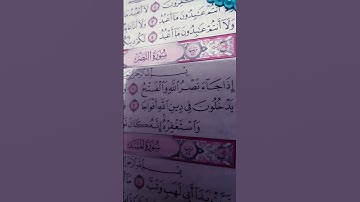 وَلَآ أَنتُمْ عَٰبِدُونَ مَآ أَعْبُدُ
وَلَآ أَنتُمْ عَٰبِدُونَ مَآ أَعْبُدُ
سُورَةُ النَّصْرِ
إِذَا جَآءَ نَصْرُ ٱللَّهِ وَٱلْفَتْحُ
يَدْخُلُونَ فِى دِينِ ٱللَّهِ أَفْوَاجًا
وَٱسْتَغْفِرْهُ إِنَّهُۥ كَانَ
سُورَةُ المَسَد
تَبَّتْ يَدَآ أَبِى لَهَبٍ وَتَبَّ